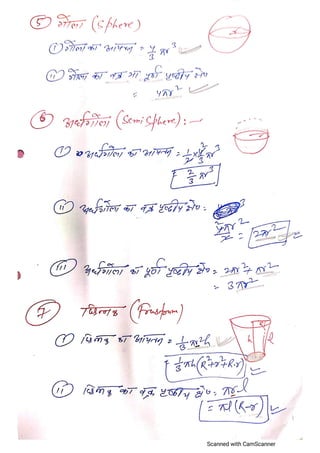 ⑤ गोला (Sphere)
① गोला का आयतन = 4/3 πr³
② गोला का वक्र या पूर्ण पृष्ठीय क्षे॰
= 4πr²
⑥ अर्धगोला (Semi Sphere):-
① अर्धगोला का आयतन = 1/2 × 4/3 πr³
2/3 πr³
② अर्धगोला का वक्र पृष्ठीय क्षे॰ =
4πr²/2 = 2πr²
③ अर्धगोला का पूर्ण पृष्ठीय क्षे॰ = 2πr² + πr²
= 3πr²
⑦ छिन्नक (Frustrum)
① छिन्नक का आयतन = 1/3 πr²h
h l
= 1/3 πh(R²+r²+R.r)
② छिन्नक का वक्र पृष्ठीय क्षे॰ = πr l
= πl(R-r)
Scanned with CamScanner